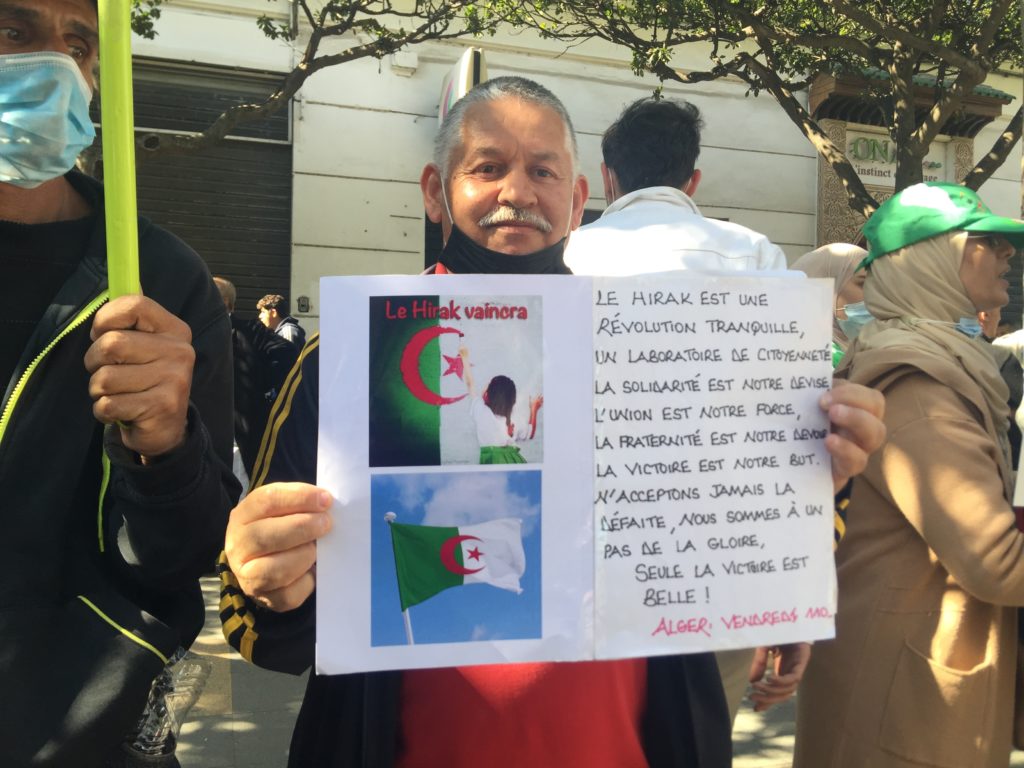 Le Hirak vaincra
LE HIRAK EST UNE
RÉVOLUTION TRANQUILLE,
UN LABORATOIRE DE CITOYENNETÉ
LA SOLIDARITÉ EST NOTRE DEVISE
L'UNION EST NOTRE FORCE,
LA FRATERNITÉ EST NOTRE DEVOIR
LA VICTOIRE EST NOTRE BUT.
N'ACCEPTONS JAMAIS LA
DÉFAITE, NOUS SOMMES À UN
PAS DE LA GLOIRE,
SEULE LA VICTOIRE EST
BELLE !
ALGER. VENDREDI 110.
ONA
l'instinct